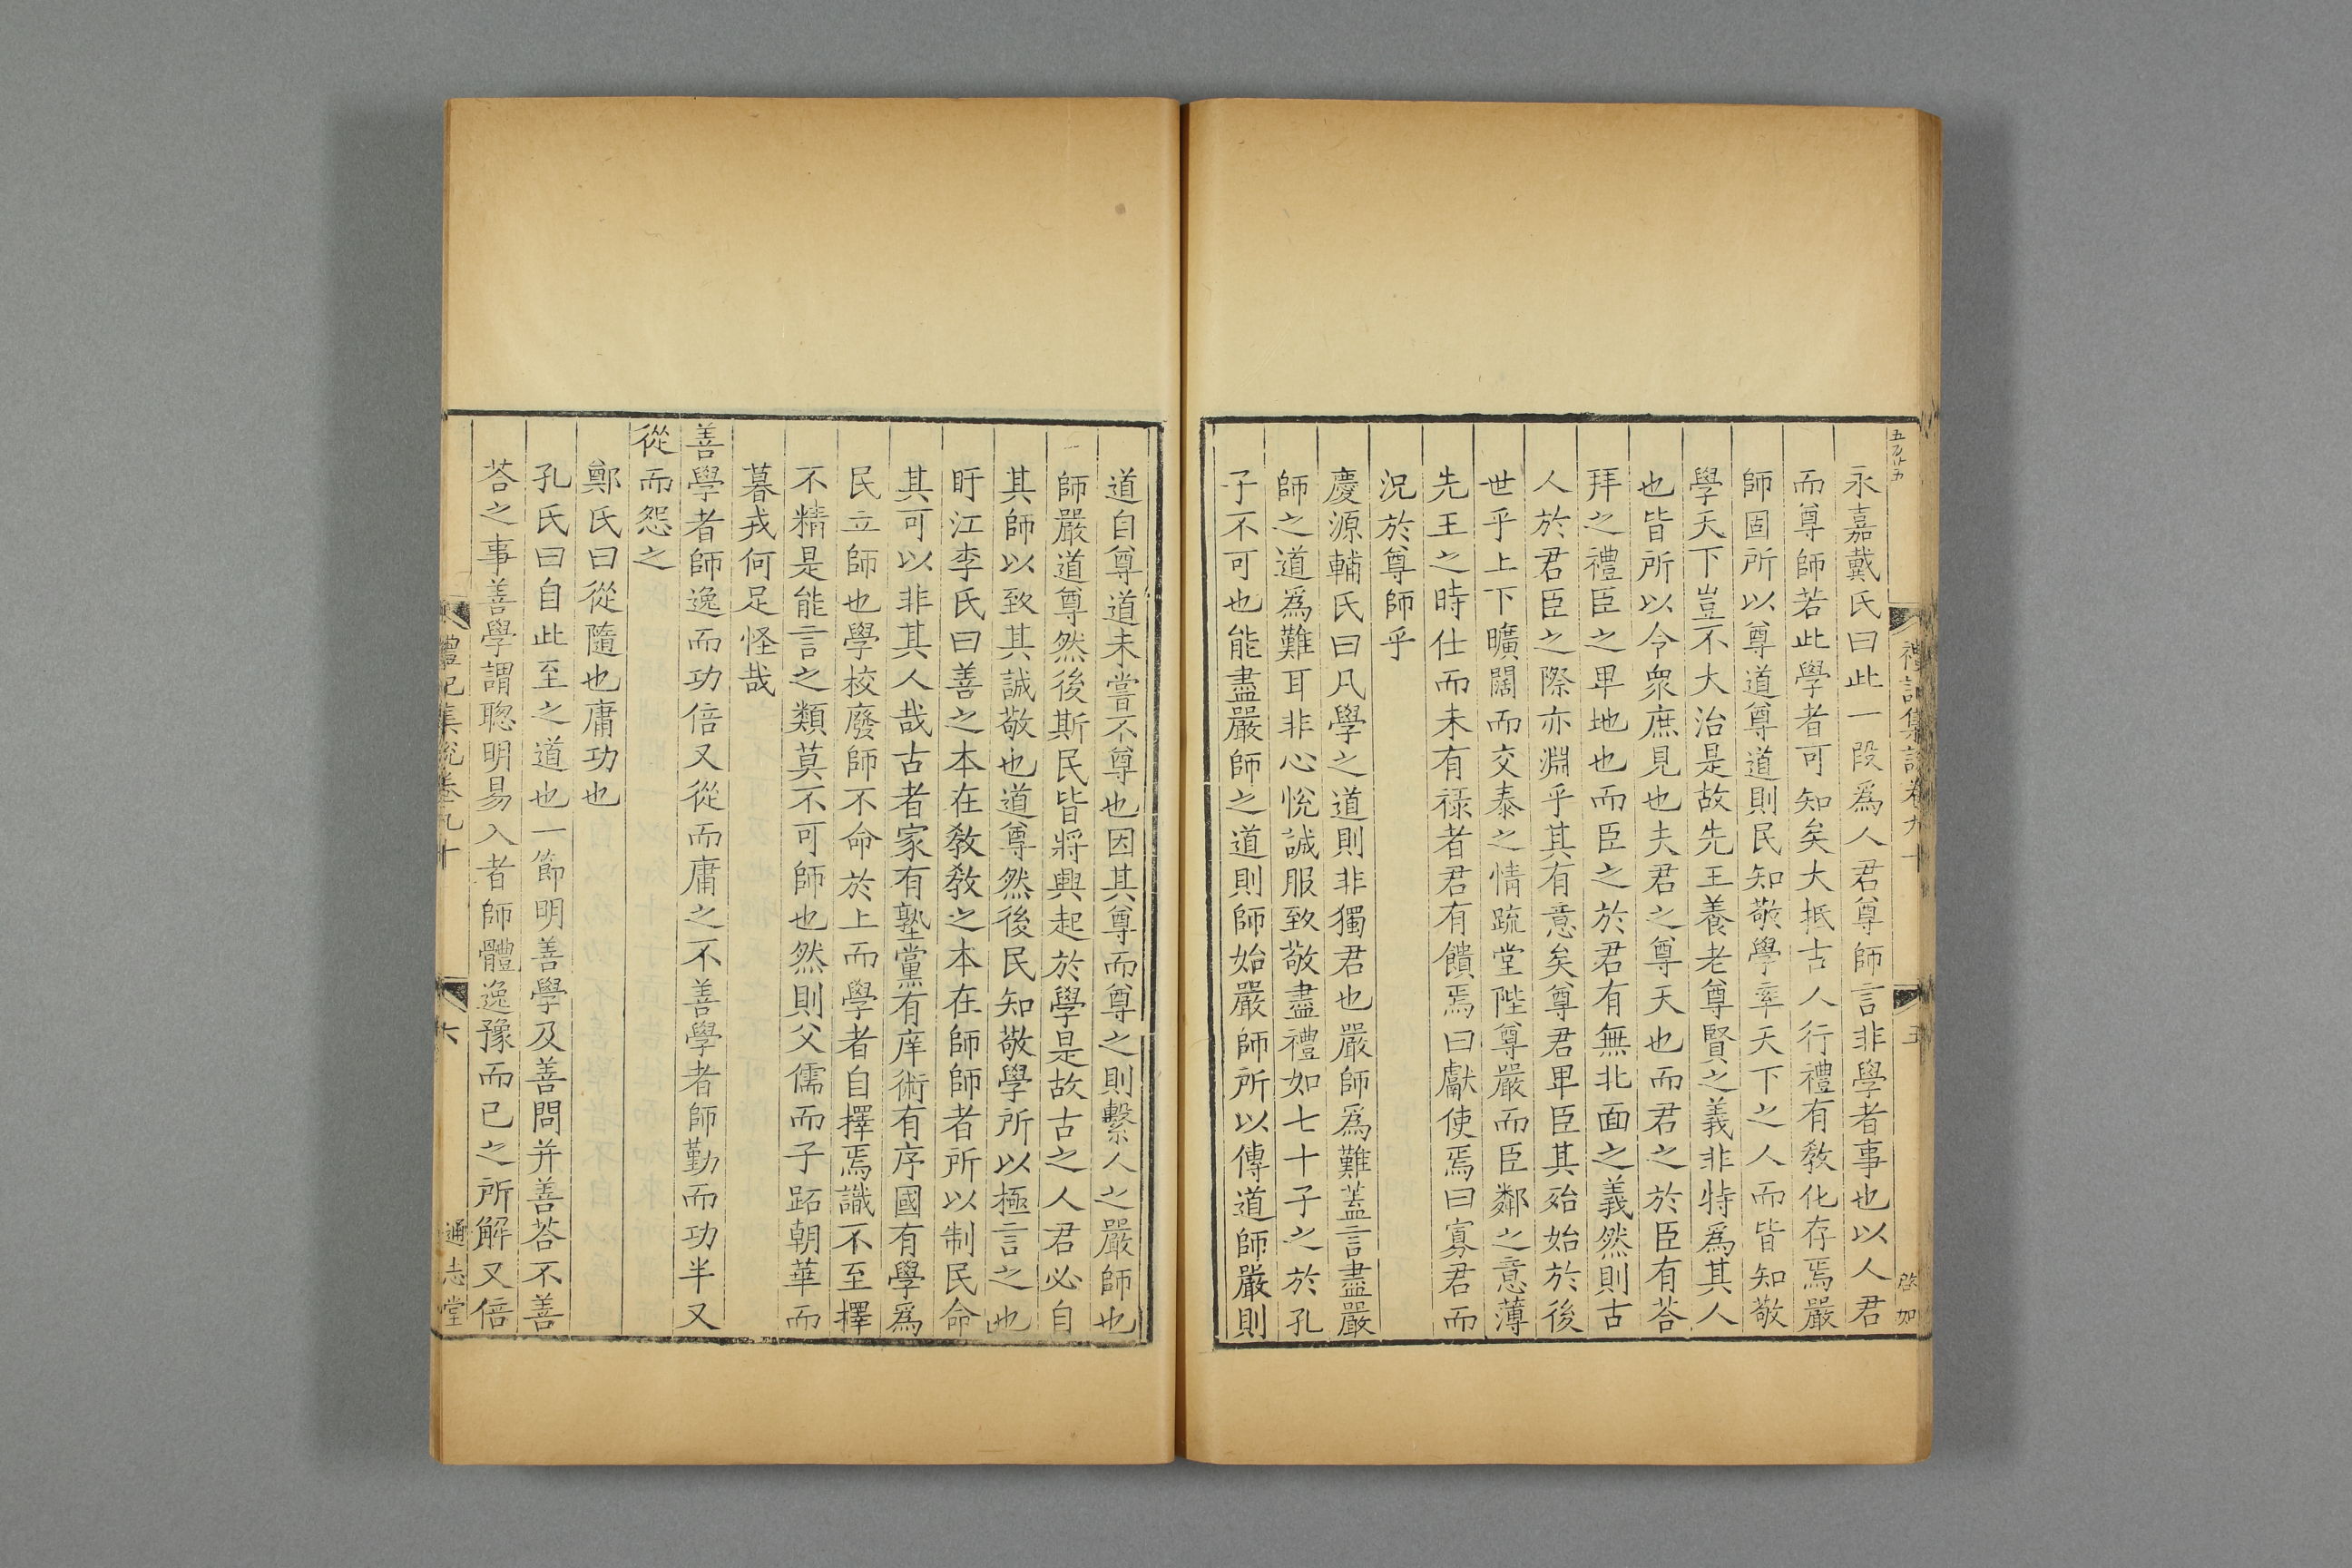 禮記集說卷九十
五
永嘉戴氏曰此一段爲人君尊師言非學者事也以人君
而尊師若此學者可知矣大抵古人行禮有敎化存焉嚴
師固所以尊道尊道則民知敬學率天下之人而皆知敬
學天下豈不大治是故先王養老尊賢之義非特爲其人
也皆所以令衆庶見也夫君之尊天也而君之於臣有荅
拜之禮臣之卑地也而臣之於君有無北面之義然則古
人於君臣之際亦淵乎其有意矣尊君卑臣其殆始於後
世乎上下曠闊而交泰之情疏堂陛尊嚴而臣鄰之意薄
先王之時仕而未有祿者君有饋焉曰獻使焉曰寡君而
況於尊師乎
慶源輔氏曰凡學之道則非獨君也嚴師爲難蓋言盡嚴
師之道爲難耳非心悅誠服致敬盡禮如七十子之於孔
子不可也能盡嚴師之道則師始嚴師所以傳道師嚴則
道自尊道未嘗不尊也因其尊而尊之則繫人之嚴師也
師嚴道尊然後斯民皆將興起於學是故古之人君必自
其師以致其誠敬也道尊然後民知敬學所以極言之也
盱江李氏曰善之本在敎敎之本在師師者所以制民命
其可以非其人哉古者家有塾黨有庠術有序國有學爲
民立師也學校廢師不命於上而學者自擇焉識不至擇
不精是能言之類莫不可師也然則父儒而子跖朝華而
暮戎何足怪哉
善學者師逸而功倍又從而庸之不善學者師勤而功半又
從而怨之
鄭氏曰從隨也庸功也
孔氏曰自此至之道也一節明善學及善問并善荅不善
荅之事善學謂聰明易入者師體逸豫而已之所解又倍
禮記集說卷九十
六
通志堂